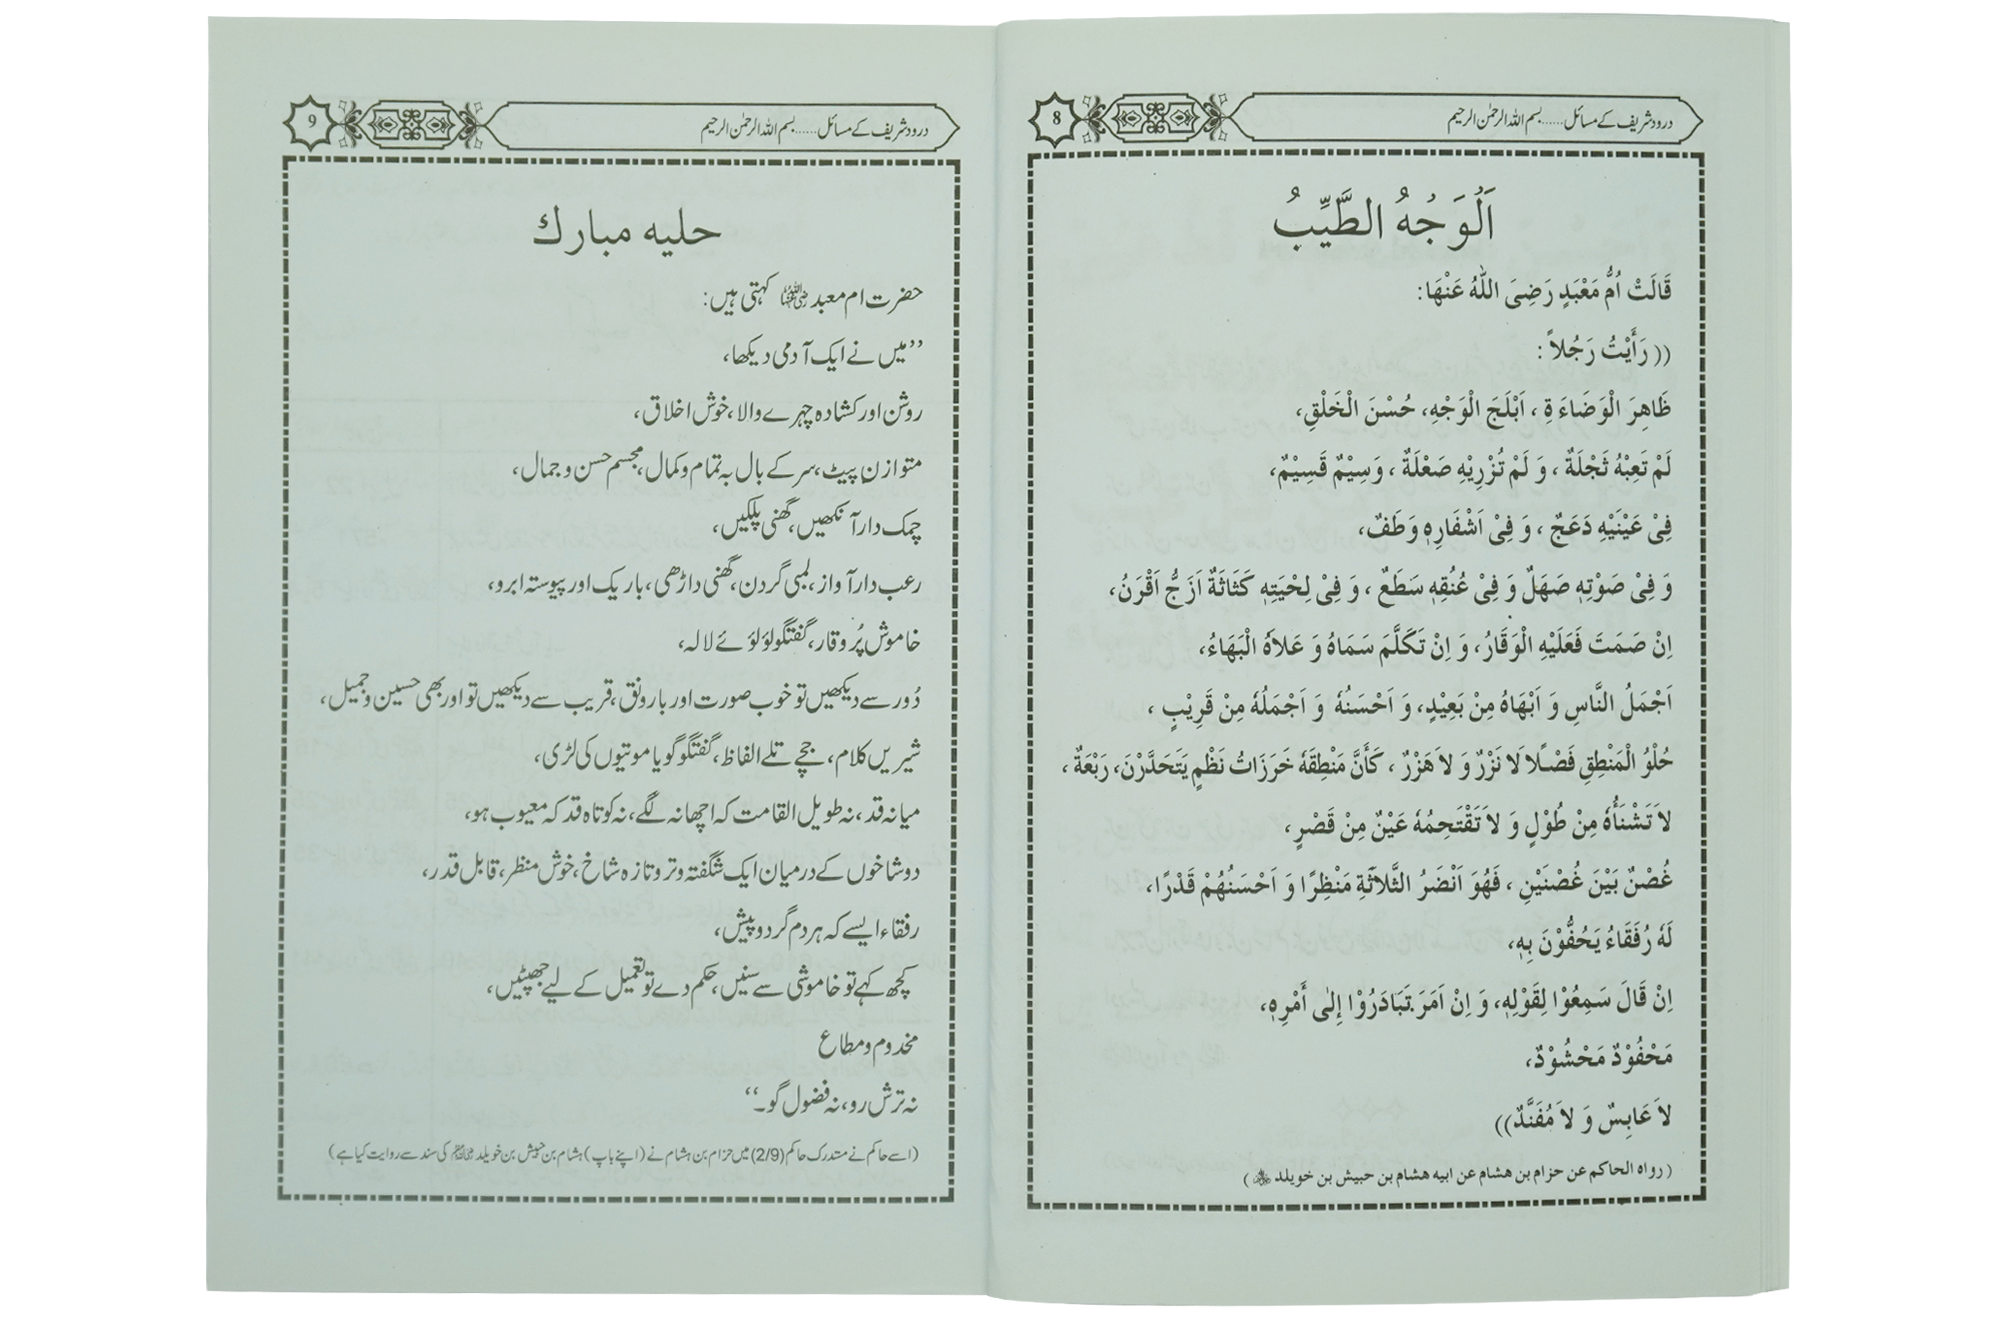 درود شریف کے مسائل......بسم اللہ الرحمٰن الرحیم
8
اَلْوَجْهُ الطَّيِّبُ
قَالَتْ اُمُّ مَعْبَدٍ رَضِیَ اللّٰهُ عَنْهَا:
(( رَأَيْتُ رَجُلاً :
ظَاهِرَ الْوَضَاءَةِ ، اَبْلَجَ الْوَجْهِ، حُسْنَ الْخَلْقِ،
لَمْ تَعِبْهُ ثَجْلَةٌ ، وَ لَمْ تُزْرِيْهِ صَعْلَةٌ ، وَسِيْمٌ قَسِيْمٌ،
فِیْ عَيْنَيْهِ دَعَجٌ ، وَ فِیْ اَشْفَارِهٖ وَطَفٌ،
وَ فِیْ صَوْتِهٖ صَهَلٌ وَ فِیْ عُنُقِهٖ سَطَعٌ ، وَ فِیْ لِحْيَتِهٖ كَثَاثَةٌ اَزَجُّ اَقْرَنُ،
اِنْ صَمَتَ فَعَلَيْهِ الْوَقَارُ، وَ اِنْ تَكَلَّمَ سَمَاهُ وَ عَلاَهُ الْبَهَاءُ،
اَجْمَلُ النَّاسِ وَ اَبْهَاهُ مِنْ بَعِيْدٍ، وَ اَحْسَنُهٗ وَ اَجْمَلُهٗ مِنْ قَرِيْبٍ ،
حُلْوُ الْمَنْطِقِ فَصْلًا لَا نَزْرٌ وَ لاَ هَزْرٌ ، كَأَنَّ مَنْطِقَهٗ خَرَزَاتُ نَظْمٍ يَتَحَدَّرْنَ، رَبْعَةٌ ،
لاَ تَشْنَأُهٗ مِنْ طُوْلٍ وَ لاَ تَقْتَحِمُهٗ عَيْنٌ مِنْ قَصْرٍ،
غُصْنٌ بَيْنَ غُصْنَيْنِ ، فَهُوَ اَنْضَرُ الثَّلاَثَةِ مَنْظِرًا وَ اَحْسَنُهُمْ قَدْرًا،
لَهٗ رُفَقَاءُ يَحُفُّوْنَ بِهٖ،
اِنْ قَالَ سَمِعُوْا لِقَوْلِهٖ، وَ اِنْ اَمَرَ تَبَادَرُوْا إِلٰى أَمْرِهٖ،
مَحْفُوْدٌ مَحْشُوْدٌ،
لاَ عَابِسٌ وَ لاَ مُفَنَّدٌ))
( رواه الحاكم عن حزام بن هشام عن ابيه هشام بن حبيش بن خويلد )
درود شریف کے مسائل......بسم اللہ الرحمٰن الرحیم
9
حلیہ مبارک
حضرت ام معبد رضی اللہ عنہا کہتی ہیں:
’’میں نے ایک آدمی دیکھا،
روشن اور کشادہ چہرے والا، خوش اخلاق،
متوازن پیٹ، سر کے بال بہ تمام و کمال، مجسم حسن و جمال،
چمک دار آنکھیں، گھنی پلکیں،
رعب دار آواز، لمبی گردن، گھنی داڑھی، باریک اور پیوستہ ابرو،
خاموش پُر وقار، گفتگو لؤلوئے لالہ،
دُور سے دیکھیں تو خوب صورت اور بارونق، قریب سے دیکھیں تو اور بھی حسین و جمیل،
شیریں کلام، جچے تلے الفاظ، گفتگو گویا موتیوں کی لڑی،
میانہ قد، نہ طویل القامت کہ اچھا نہ لگے، نہ کوتاہ قد کہ معیوب ہو،
دو شاخوں کے درمیان ایک شگفتہ و تر و تازہ شاخ، خوش منظر، قابل قدر،
رفقاء ایسے کہ ہر دم گرد و پیش،
کچھ کہے تو خاموشی سے سنیں، حکم دے تو تعمیل کے لیے جھپٹیں،
مخدوم و مطاع
نہ ترش رو، نہ فضول گو۔‘‘
(اسے حاکم نے مستدرک حاکم (2/9) میں حزام بن ہشام نے (اپنے باپ) ہشام بن حبیش بن خویلد کی سند سے روایت کیا ہے)